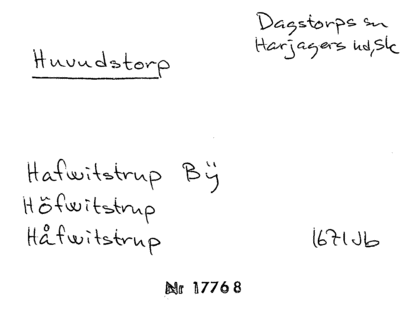 Dagstorps sn
Harjagers hd, Sk
Huvudstorp
Hafwitstrup Bÿ
Höfwitstrup
Håfwitstrup 1671 Jb
Nr 17768